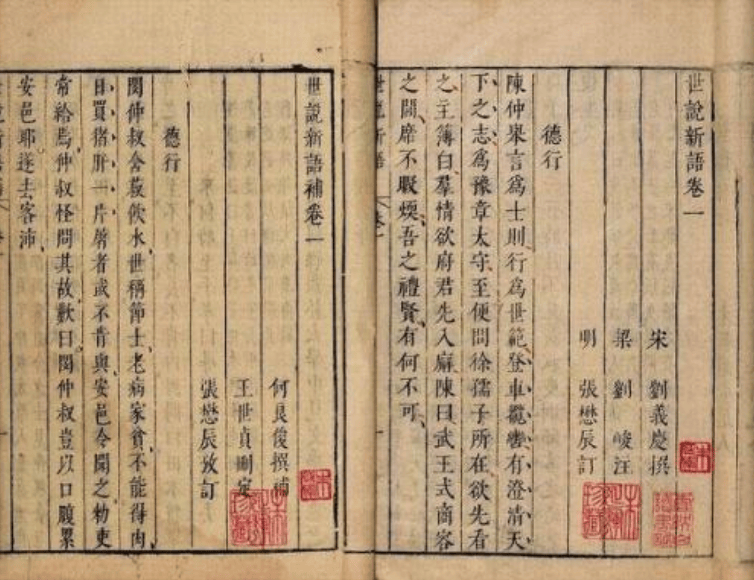 世說新語卷一
宋 劉義慶撰
梁 劉峻注
明 張懋辰訂
德行
陳仲舉言為士則行為世範登車攬轡有澄清天
下之志為豫章太守至便問徐孺子所在欲先看
之主簿白羣情欲府君先入廨陳曰武王式商容
之閭席不暇煗吾之禮賢有何不可
世說新語 卷一
世說新語補卷一
何良俊撰補
王世貞刪定
張懋辰攷訂
德行
閔仲叔含菽飲水世稱節士老病家貧不能得肉
日買猪肝一片屠者或不肯與安邑令聞之勑吏
常給焉仲叔怪問其故歎曰閔仲叔豈以口腹累
安邑耶遂去客沛